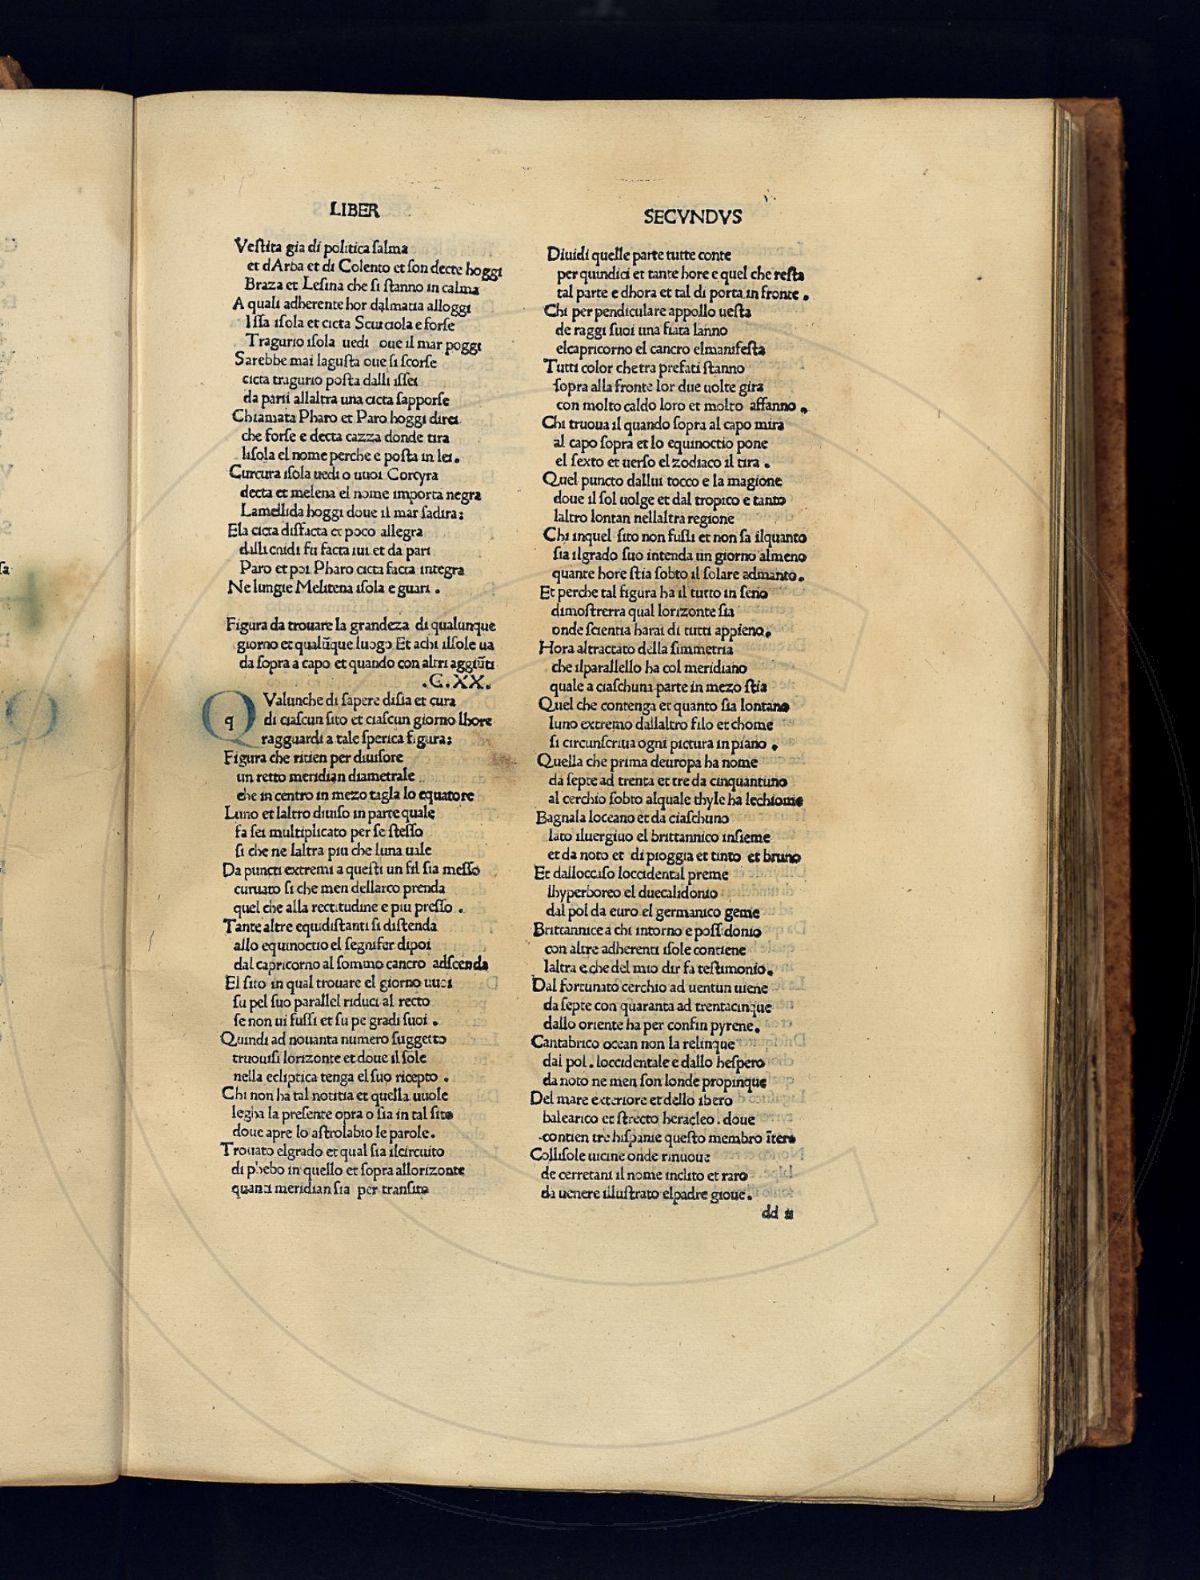 LIBER
Vestita gia di politica salma
et dArba et di Colento et son decte hoggi
Braza et Lesina che si stanno in calma
A quali adherente hor dalmatia alloggi
Issa isola et cicta Scurciola e forse
Tragurio isola uedi oue il mar poggi
Sarebbe mai lagusta oue si scorse
cicta tragurio posta dalli issei
da parii allaltra una cicta sapporse
Chiamata Pharo et Paro hoggi direi
che forse e decta cazza donde tira
lisola el nome perche e posta in lei.
Curcura isola uedi o uuoi Corcyra
decta et melena el nome importa negra
Lamellida hoggi doue il mar sadira:
Ela cicta disfacta et poco allegra
dalli cnidi fu facta iui et da pari
Paro et poi Pharo cicta facta integra
Ne lungie Melitena isola e guari.
Figura da trouare la grandeza di qualunque
giorno et qualūque luogo Et achi ilsole ua
da sopra a capo et quando con altri aggiūti
.C.XX.
QValunche di sapere disia et cura
q di ciascun sito et ciascun giorno lhore
ragguardi a tale sperica figura:
Figura che ritien per diuisore
un retto meridian diametrale
che in centro in mezo tagla lo equatore
Luno et laltro diuiso in parte quale
fa sei multiplicato per se stesso
si che ne laltra piu che luna uale
Da puncti extremi a questi un fil sia messo
curuato si che men dellarco prenda
quel che alla rectitudine e piu presso.
Tante altre equidistanti si distenda
allo equinoctio el segnifer dipoi
dal capricorno al sommo cancro adscenda
El sito in qual trouare el giorno uuoi
su pel suo parallel riduci al recto
se non ui fussi et su pe gradi suoi.
Quindi ad nouanta numero suggetto
truouisi lorizonte et doue il sole
nella ecliptica tenga el suo ricepto.
Chi non ha tal notitia et quella uuole
legha la presente opra o sia in tal sito
doue apre lo astrolabio le parole.
Trouato elgrado et qual sia ilcircuito
di phebo in quello et sopra allorizonte
quanti meridian sia per transito
SECVNDVS
Diuidi quelle parte tutte conte
per quindici et tante hore e quel che resta
tal parte e dhora et tal di porta in fronte.
Chi per pendiculare appollo uesta
de raggi suoi una fiata lanno
elcapricorno el cancro elmanifesta
Tutti color chetra prefati stanno
sopra alla fronte lor due uolte gira
con molto caldo loro et molto affanno.
Chi truoua il quando sopra al capo mira
al capo sopra et lo equinoctio pone
el sexto et uerso el zodiaco il tira.
Quel puncto dallui tocco e la magione
doue il sol uolge et dal tropico e tanto
laltro lontan nellaltra regione
Chi inquel sito non fussi et non sa ilquanto
sia ilgrado suo intenda un giorno almeno
quante hore stia sobto il solare admanto.
Et perche tal figura ha il tutto in seno
dimostrerra qual lorizonte sia
onde scientia harai di tutti appieno.
Hora altractato della simmetria
che ilparallello ha col meridiano
quale a ciaschuna parte in mezo stia
Quel che contenga et quanto sia lontano
luno extremo dallaltro filo et chome
si circunscriua ogni pictura in piano.
Quella che prima deuropa ha nome
da septe ad trenta et tre da cinquantuno
al cerchio sobto alquale thyle ha lechiome
Bagnala loceano et da ciaschuno
lato iluergiuo el brittannico insieme
et da noto et di pioggia et tinto et bruno
Et dalloccaso loccidental preme
lhyperboreo el duecalidonio
dal pol da euro el germanico geme
Brittannice a chi intorno e possidonio
con altre adherenti isole contiene
laltra e che del mio dir fa testimonio.
Dal fortunato cerchio ad uentun uiene
da septe con quaranta ad trentacinque
dallo oriente ha per confin pyrene.
Cantabrico ocean non la relinque
dal pol. loccidentale e dallo hespero
da noto ne men son londe propinque
Del mare exteriore et dello ibero
balearico et strecto heracleo. doue
contien tre hispanie questo membro ītero
Collisole uicine onde rinuoua
de cerretani il nome inclito et raro
da uenere illustrato elpadre gioue.
dd ii